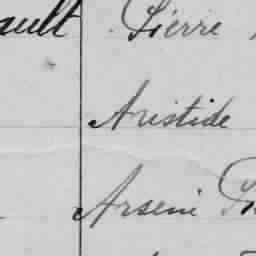 ault Pierre
Aristide
Arseni